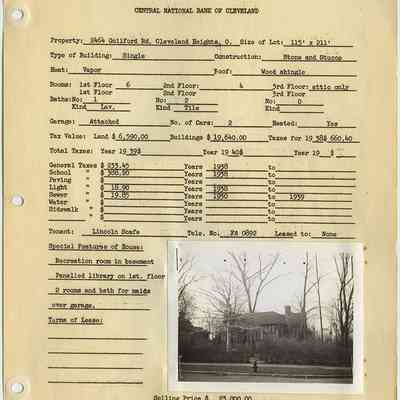 CENTRAL NATIONAL BANK OF CLEVELAND
Property: 2464 Guilford Rd, Cleveland Heights, O. Size of Lot: 115' x 211'
Type of Building: Single Construction: Stone and Stucco
Heat: Vapor Roof: Wood shingle
Rooms: 1st Floor 6 2nd Floor: 4 3rd Floor: attic only
1st Floor 2nd Floor 3rd Floor
Baths: No: 1 No: 2 No: 0
Kind Lav. Kind Tile Kind
Garage: Attached No. of Cars: 2 Heated: Yes
Tax Value: Land $ 6,590.00 Buildings $ 19,640.00 Taxes for 1938 $ 660.40
Total Taxes: Year 1939 $ Year 1940 $ Year 19 $
General Taxes $ 233.45 Years 1938 to
School " $ 388.90 Years 1938 to
Paving " $ Years to
Light " $ 18.90 Years 1938 to
Sewer " $ 19.85 Years 1930 to 1939
Water " $ Years to
Sidewalk " $ Years to
$ Years to
Tenant: Lincoln Scafe Tele. No. FA 0892 Leased to: None
Special Features of House:
Recreation room in basement
Panelled library on 1st. floor
2 rooms and bath for maids
over garage.
Terms of Lease:
Selling Price $ 23,000.00